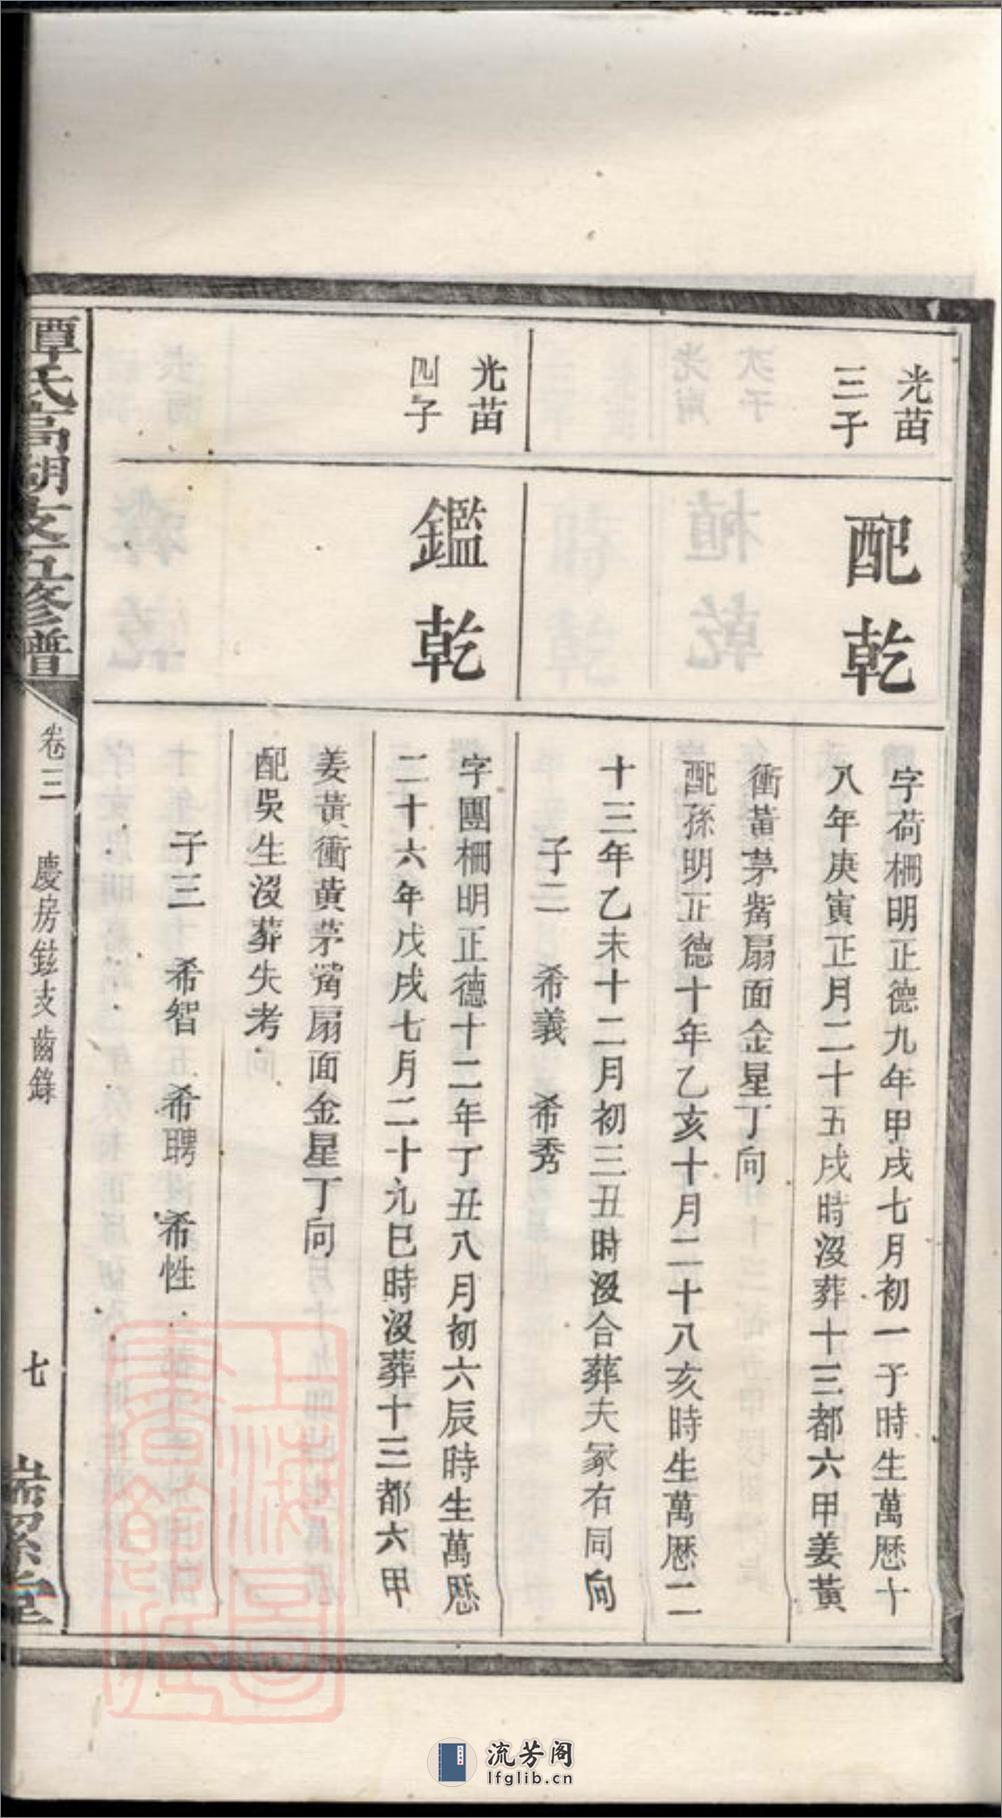 光苗
三子
配乾
字荷柵明正德九年甲戌七月初一子時生萬厯十
八年庚寅正月二十五戌時沒葬十三都六甲姜黃
衝黃茅觜扇面金星丁向
配孫明正德十年乙亥十月二十八亥時生萬厯二
十三年乙未十二月初三丑時沒合葬夫冢右同向
子二　希義　希秀
光苗
四子
鑑乾
字團柵明正德十二年丁丑八月初六辰時生萬厯
二十六年戊戌七月二十九巳時沒葬十三都六甲
姜黃衝黃茅觜扇面金星丁向
配吳生沒葬失考
子三　希智　希聘　希性
譚氏高湖支五修譜
卷三　慶房鉉支齒錄
七
堂
上海圖書館藏
流芳阁
lfglib.cn